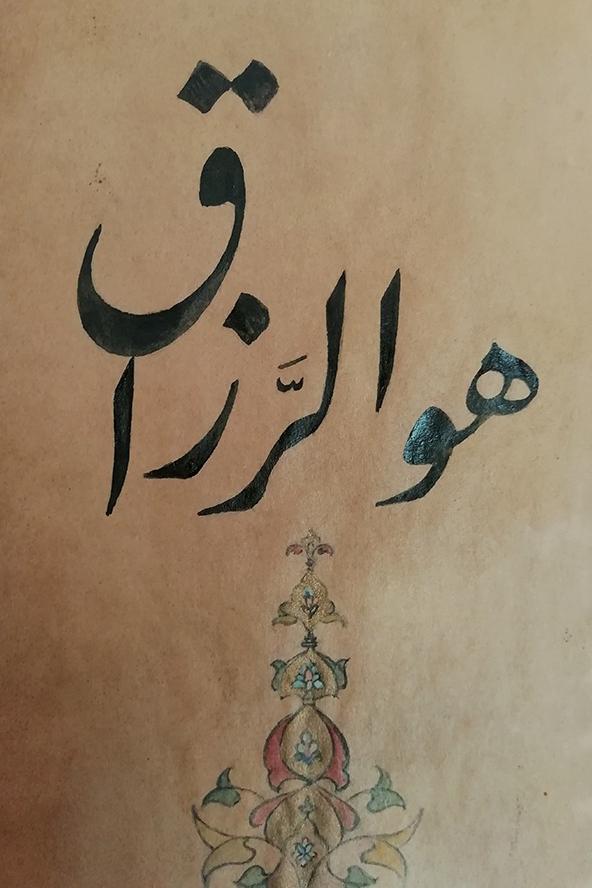 هو الرَّزاق